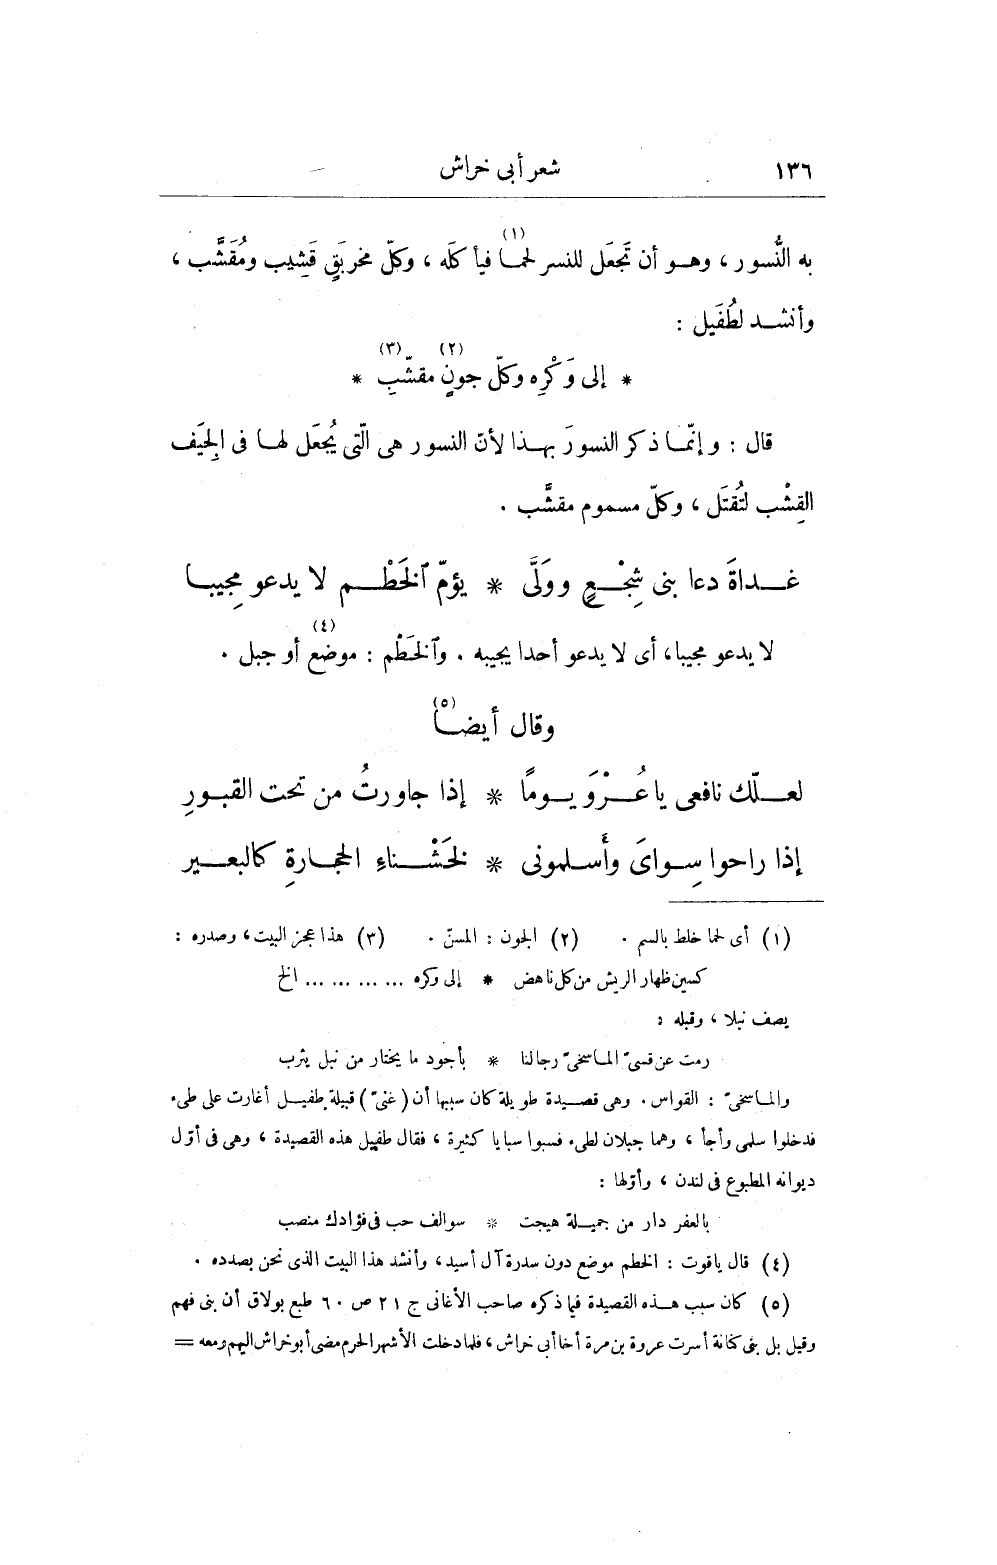 ١٣٦ شعر أبى خراش
به النُّسور، وهـو أن تَجعَل للنسر لحمـا (١) فيأكلَه، وكلّ مخربَقٍ قَشِيب ومُقَشَّب،
وأنشـد لطُفَيل :
* إلى وَكْرِه وكلّ جونٍ (٢) مقشّبِ (٣) *
قال : وإنّمـا ذكر النسورَ بهـذا لأنّ النسور هى الّتى يُجعَل لهـا فى الجِيَف
القِشْب لتُقتَل، وكلّ مسموم مقشَّب .
غـداةَ دعا بنى شِجْـعٍ وولَّى * يؤمّ ٱلخَطْـم لا يدعو مجِيبـا
لا يدعو مجيبا، أى لا يدعو أحدا يجيبه . وٱلخَطْم : موضع (٤) أو جبل .
وقال أيضـا (٥)
لعـلّك نافعى يا عُـرْوَ يـومًا * إذا جاورتُ من تحت القبورِ
إذا راحوا سِـواىَ وأَسلمونى * لخَشْـناءِ الحجـارةِ كالبعـير
(١) أى لحما خلط بالسم . (٢) الجون : المسنّ . (٣) هذا عجز البيت، وصدره :
كسين ظهار الريش من كل ناهض * إلى وكره ... ... ... ... الخ
يصف نبلا، وقبله :
رمت عن قسىّ المـاسخىّ رجالنا * بأجود ما يختار من نبل يثرب
والمـاسخىّ : القواس . وهى قصـيدة طويلة كان سببها أن (غنىّ) قبيلة طفيـل أغارت على طىء
فدخلوا سلمى وأجأ، وهما جبلان لطىء فسبوا سبايا كثيرة، فقال طفيل هذه القصيدة، وهى فى أوّل
ديوانه المطبوع فى لندن، وأوّلها :
بالعفر دار من جميـلة هيجت * سوالف حب فى فؤادك منصب
(٤) قال ياقوت : الخطم موضع دون سدرة آل أسيد، وأنشد هذا البيت الذى نحن بصدده .
(٥) كان سبب هـذه القصيدة فيما ذكره صاحب الأغانى ج ٢١ ص ٦٠ طبع بولاق أن بنى فهم
وقيل بل بنى كنانة أسرت عروة بن مرة أخا أبى خراش، فلما دخلت الأشهر الحرم مضى أبو خراش اليهم ومعه =